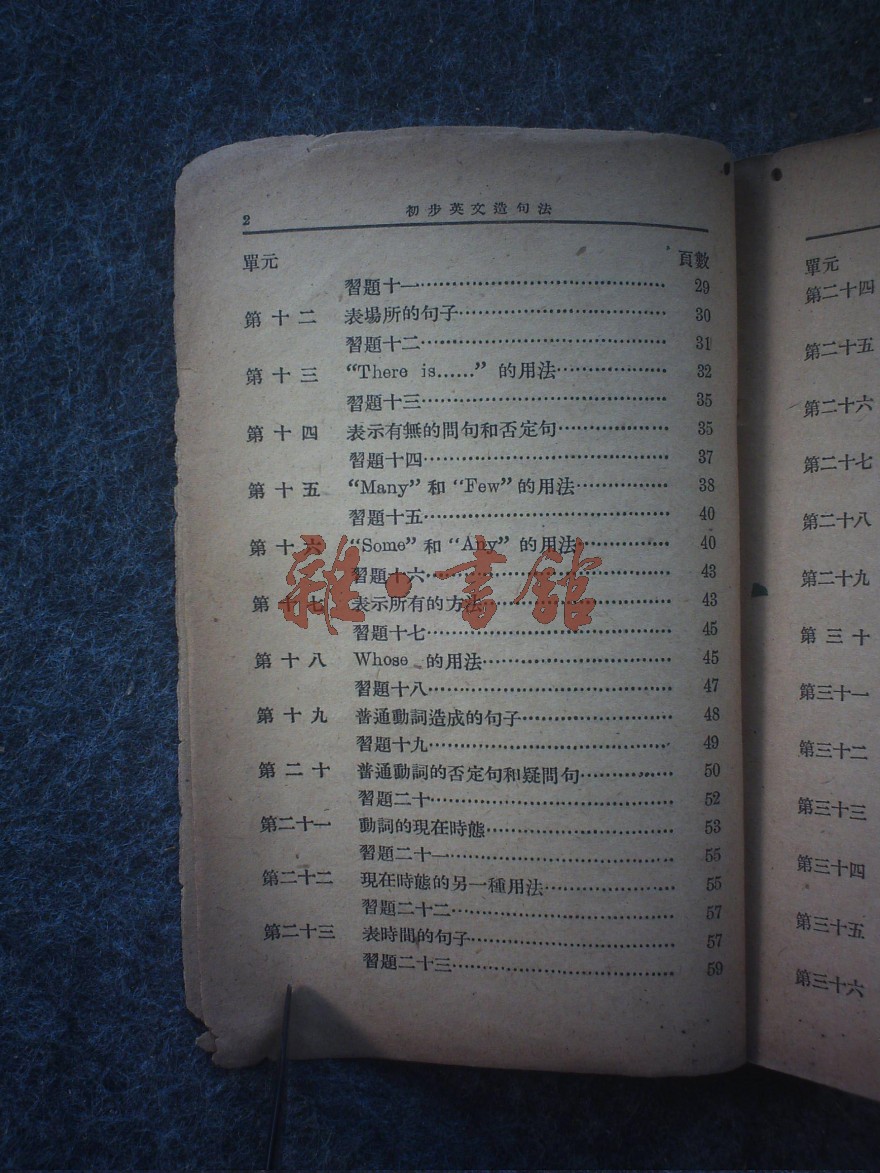 2 初步英文造句法
單元 頁數
習題十一 29
第十二 表場所的句子 30
習題十二 31
第十三 “There is......” 的用法 32
習題十三 35
第十四 表示有無的問句和否定句 35
習題十四 37
第十五 “Many” 和 “Few” 的用法 38
習題十五 40
第十六 “Some” 和 “Any” 的用法 40
習題十六 43
第十七 表示所有的方法 43
習題十七 45
第十八 Whose 的用法 45
習題十八 47
第十九 普通動詞造成的句子 48
習題十九 49
第二十 普通動詞的否定句和疑問句 50
習題二十 52
第二十一 動詞的現在時態 53
習題二十一 55
第二十二 現在時態的另一種用法 55
習題二十二 57
第二十三 表時間的句子 57
習題二十三 59
雜·書館
單元
第二十四
第二十五
第二十六
第二十七
第二十八
第二十九
第三十
第三十一
第三十二
第三十三
第三十四
第三十五
第三十六